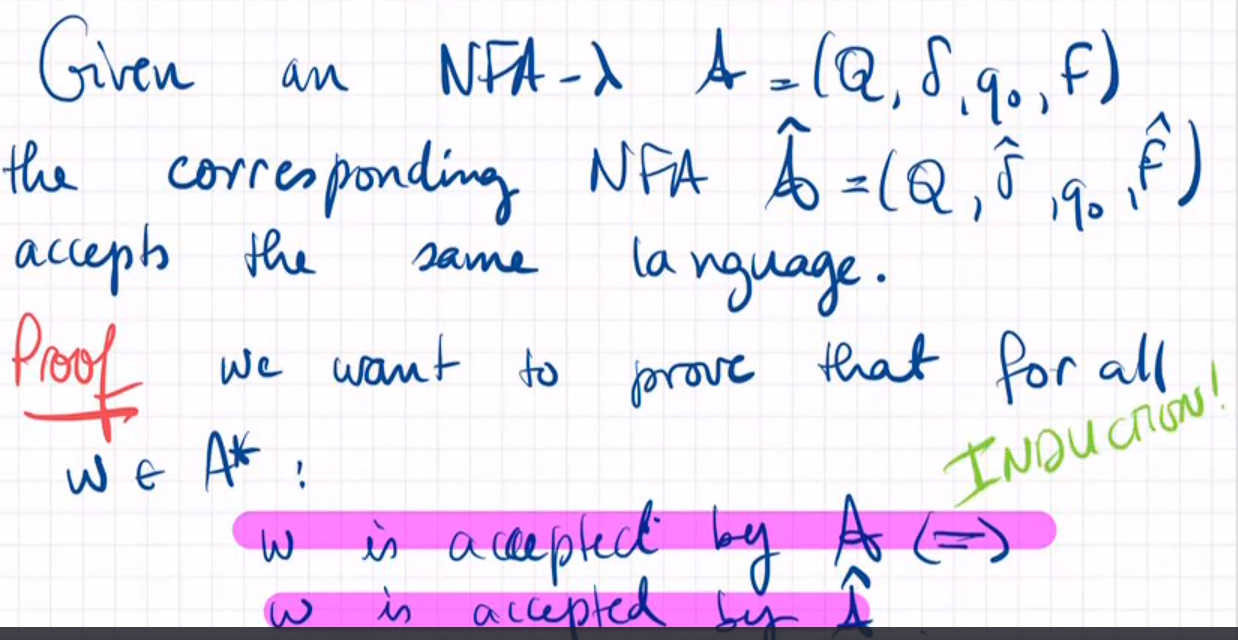 Given an NFA-λ A = (Q, δ, q₀, F)
the corresponding NFA Â = (Q, δ̂, q₀, F̂)
accepts the same language.
Proof we want to prove that for all
INDUCTION!
w ∈ A* :
w is accepted by A (=)
w is accepted by Â